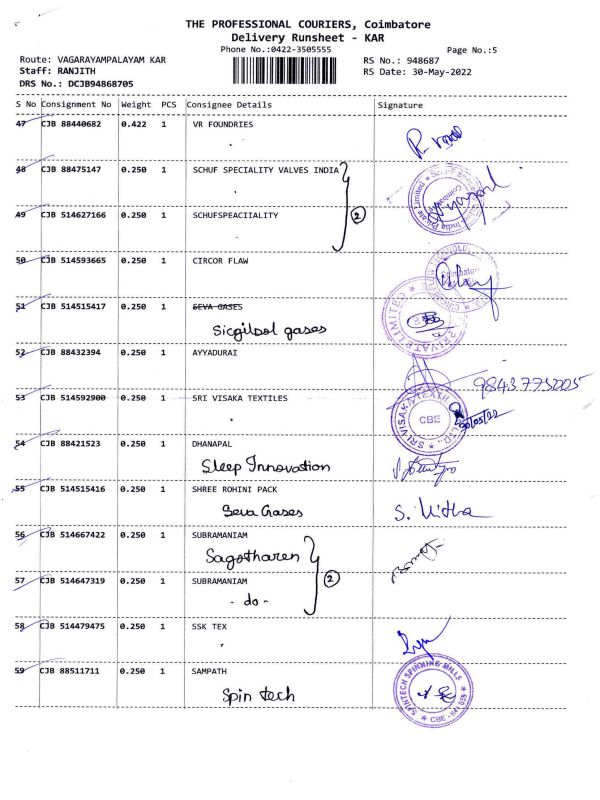 THE PROFESSIONAL COURIERS, Coimbatore
Delivery Runsheet - KAR
Phone No.:0422-3505555
Page No.:5
Route: VAGARAYAMPALAYAM KAR
RS No.: 948687
Staff: RANJITH
RS Date: 30-May-2022
DRS No.: DCJB94868705
S No Consignment No Weight PCS Consignee Details Signature
47 CJB 88440682 0.422 1 VR FOUNDRIES
48 CJB 88475147 0.250 1 SCHUF SPECIALITY VALVES INDIA
2
49 CJB 514627166 0.250 1 SCHUFSPEACIIALITY
50 CJB 514593665 0.250 1 CIRCOR FLAW
51 CJB 514515417 0.250 1 SEVA GASES
Sicgilsol gases
52 CJB 88432394 0.250 1 AYYADURAI
9843775005
53 CJB 514592900 0.250 1 SRI VISAKA TEXTILES
CBE
30/05/22
54 CJB 88421523 0.250 1 DHANAPAL
Sleep Innovation
55 CJB 514515416 0.250 1 SHREE ROHINI PACK
Seva Gases
56 CJB 514667422 0.250 1 SUBRAMANIAM
Sagotharen
2
57 CJB 514647319 0.250 1 SUBRAMANIAM
- do -
58 CJB 514479475 0.250 1 SSK TEX
59 CJB 88511711 0.250 1 SAMPATH
Spin tech
SPINTECH SPINNING MILLS